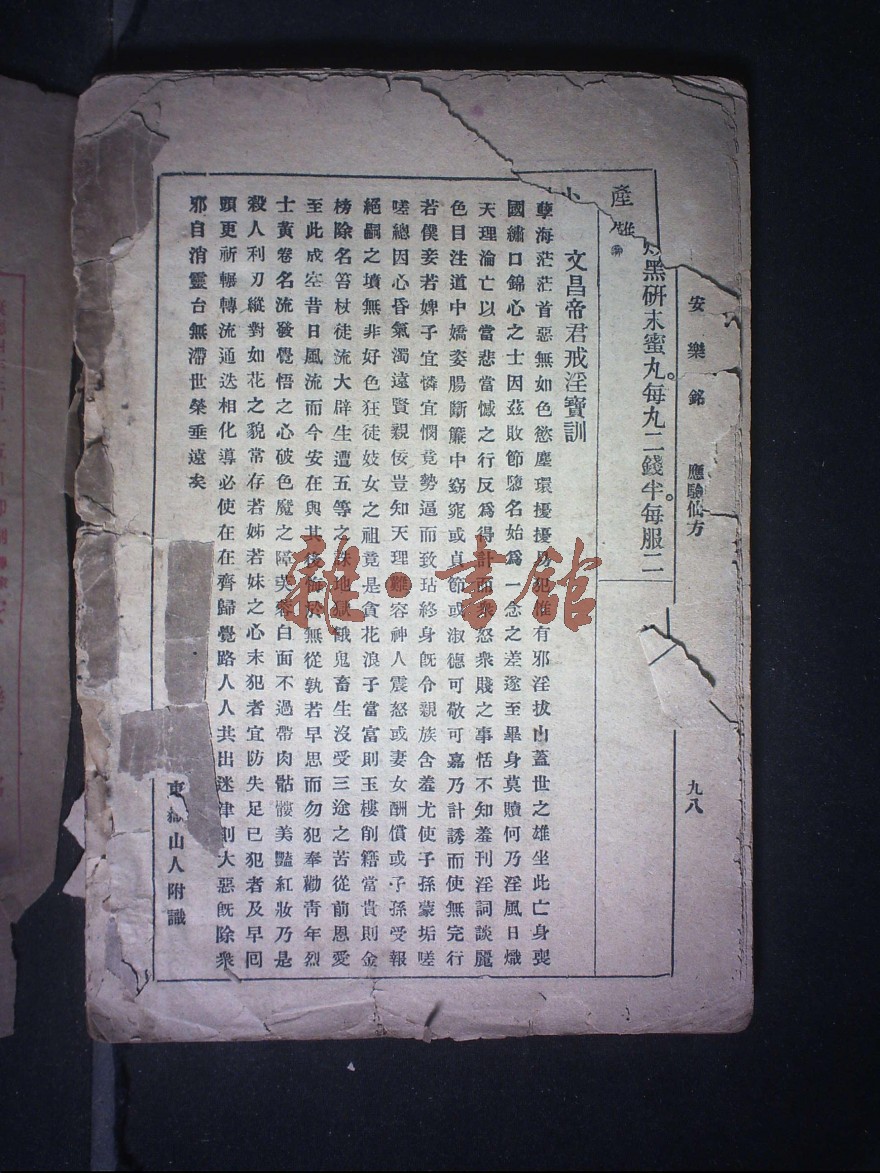 安樂銘 應驗仙方 九八
黑研末蜜丸。每丸二錢半。每服二
產
文昌帝君戒淫寶訓
孽海茫茫首惡無如色慾塵環擾擾易犯惟有邪淫拔山蓋世之雄坐此亡身喪
國繡口錦心之士因茲敗節墮名始爲一念之差遂至畢身莫贖何乃淫風日熾
天理淪亡以當悲當憾之行反爲得計而衆怒衆賤之事恬不知羞刊淫詞談麗
色目注道中嬌姿腸斷簾中窈窕或貞節或淑德可敬可嘉乃計誘而使無完行
若僕妾若婢子宜憐宜憫竟勢逼而致玷終身旣令親族含羞尤使子孫蒙垢嗟
嗟總因心昏氣濁遠賢親佞豈知天理難容神人震怒或妻女酬償或子孫受報
絕嗣之墳無非好色狂徒妓女之祖竟是貪花浪子當富則玉樓削籍當貴則金
榜除名笞杖徒流大辟生遭五等之誅地獄餓鬼畜生沒受三途之苦從前恩愛
至此成空昔日風流而今安在與其後悔於無從孰若早思而勿犯奉勸青年烈
士黃卷名流發覺悟之心破色魔之障芙蓉白面不過帶肉骷髏美豔紅妝乃是
殺人利刃縱對如花之貌常存若姊若妹之心未犯者宜防失足已犯者及早回
頭更祈輾轉流通迭相化導必使在在齊歸覺路人人共出迷津則大惡旣除衆
邪自消靈台無滯世榮垂遠矣
東 山人附識
雜·書館